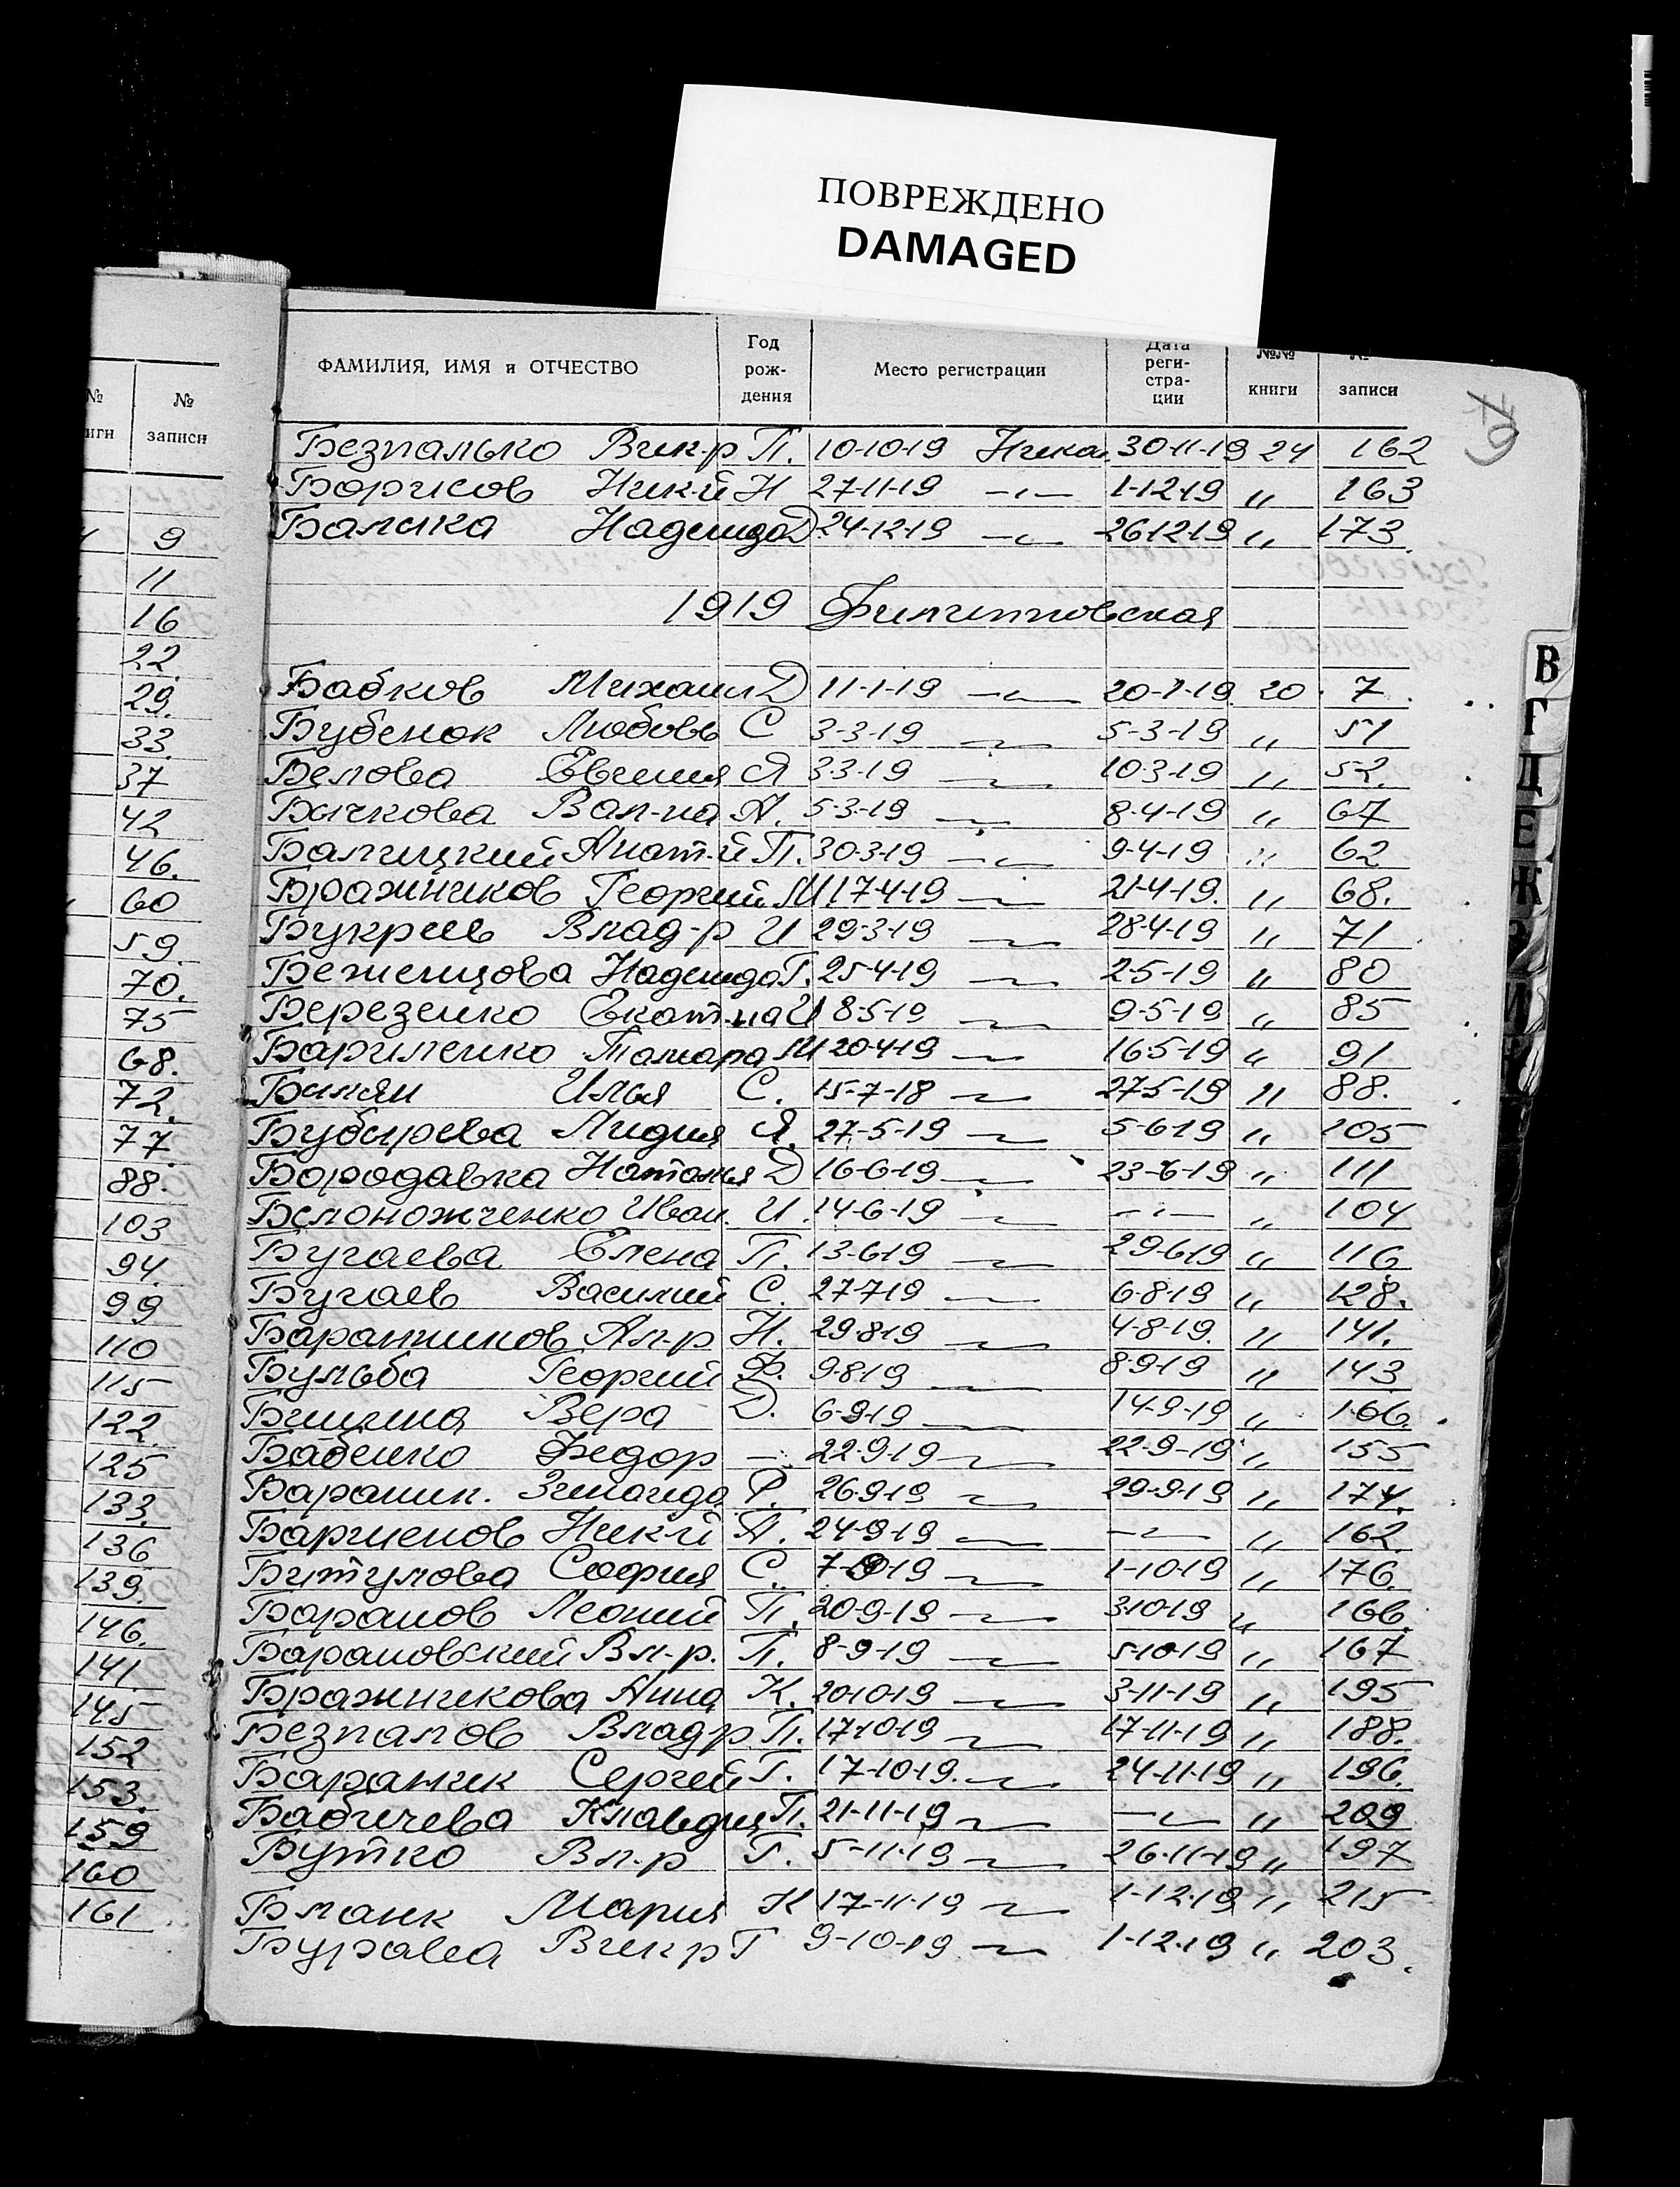 ПОВРЕЖДЕНО
DAMAGED
№ № записи
9
11
16
22.
29.
33.
37
42
46.
60
59.
70.
75
68.
72.
77.
88.
103
94.
99
110
115
122.
125
133.
136
139.
146.
141.
145
152
153.
159
160
161
ФАМИЛИЯ, ИМЯ и ОТЧЕСТВО Год рож- дения Место регистрации Дата реги- стра- ции №№ книги № записи
79
Безпалько Вик-р П. 10-10-19 30-11-19 24 162
Борисов Ник-й Н 27-11-19 —〃— 1-12-19 〃 163
Балыка Надежда Д. 24-12-19 —〃— 26-12-19 〃 173.
1919 Филипповская
Бабков Михаил Д 11-1-19 —〃— 20-1-19 20. 7.
Бубенок Любовь С 3-3-19 —〃— 5-3-19 〃 51
Белова Евгения Я 3-3-19 —〃— 10-3-19 〃 52.
Бычкова Вал-на А. 5-3-19 —〃— 8-4-19 〃 67
Балицкий Анат-й П. 30-3-19 —〃— 9-4-19 〃 62
Бражников Георгий М 17-4-19 —〃— 21-4-19. 〃 68.
Букреев Влад-р И 29-3-19 —〃— 28-4-19 〃 71
Беженцова Надежда Г. 25-4-19 —〃— 2-5-19 〃 80
Березенко Екат-на И 8-5-19 —〃— 9-5-19 〃 85
Бариленко Тамара М 20-4-19 —〃— 16-5-19 〃 91
Илья С. 15-7-18 —〃— 27-5-19 〃 88.
Бубырева Лидия Я. 27-5-19 —〃— 5-6-19 〃 105
Бородавка Наталья Д 16-6-19 —〃— 23-6-19 〃 111
Белоножченко Иван. И. 14-6-19 —〃— —〃— 〃 104
Бугаева Елена П. 13-6-19 —〃— 29-6-19 〃 116
Бугаев Василий С. 27-7-19 —〃— 6-8-19 〃 128.
Баранников Ал-р Н. 29-8-19 —〃— 4-8-19. 〃 141.
Бульба Георгий Ф. 9-8-19 —〃— 8-9-19 〃 143
Вера Д. 6-9-19 —〃— 14-9-19 〃 166.
Бабенко Федор — 22-9-19 —〃— 22-9-19 〃 155
Баранник. Зинаида Р. 26-9-19 —〃— 29-9-19 〃 174.
Ник-й А. 24-9-19 —〃— —〃— 〃 162
Битулова София С. —〃— 1-10-19 〃 176.
Баранов Леонид П. 20-9-19 —〃— 3-10-19 〃 166.
Барановский Вл-р. П. 8-9-19 —〃— 5-10-19 〃 167
Бражникова Анна К. 20-10-19 —〃— 3-11-19 〃 195
Безпалов Влад-р П. 17-10-19 —〃— 17-11-19 〃 188.
Баранник Сергей Г. 17-10-19. —〃— 24-11-19 〃 196.
Бабичева Клавдия П. 21-11-19 —〃— —〃— 〃 209
Бутко Вл-р Г. 5-11-19 —〃— 26-11-19 〃 197
Бланк Мария К 17-11-19 —〃— 1-12-19 〃 215
Вик-р Г 9-10-19 —〃— 1-12-19 〃 203.
В
Г
Д
Е
Ж
З
И